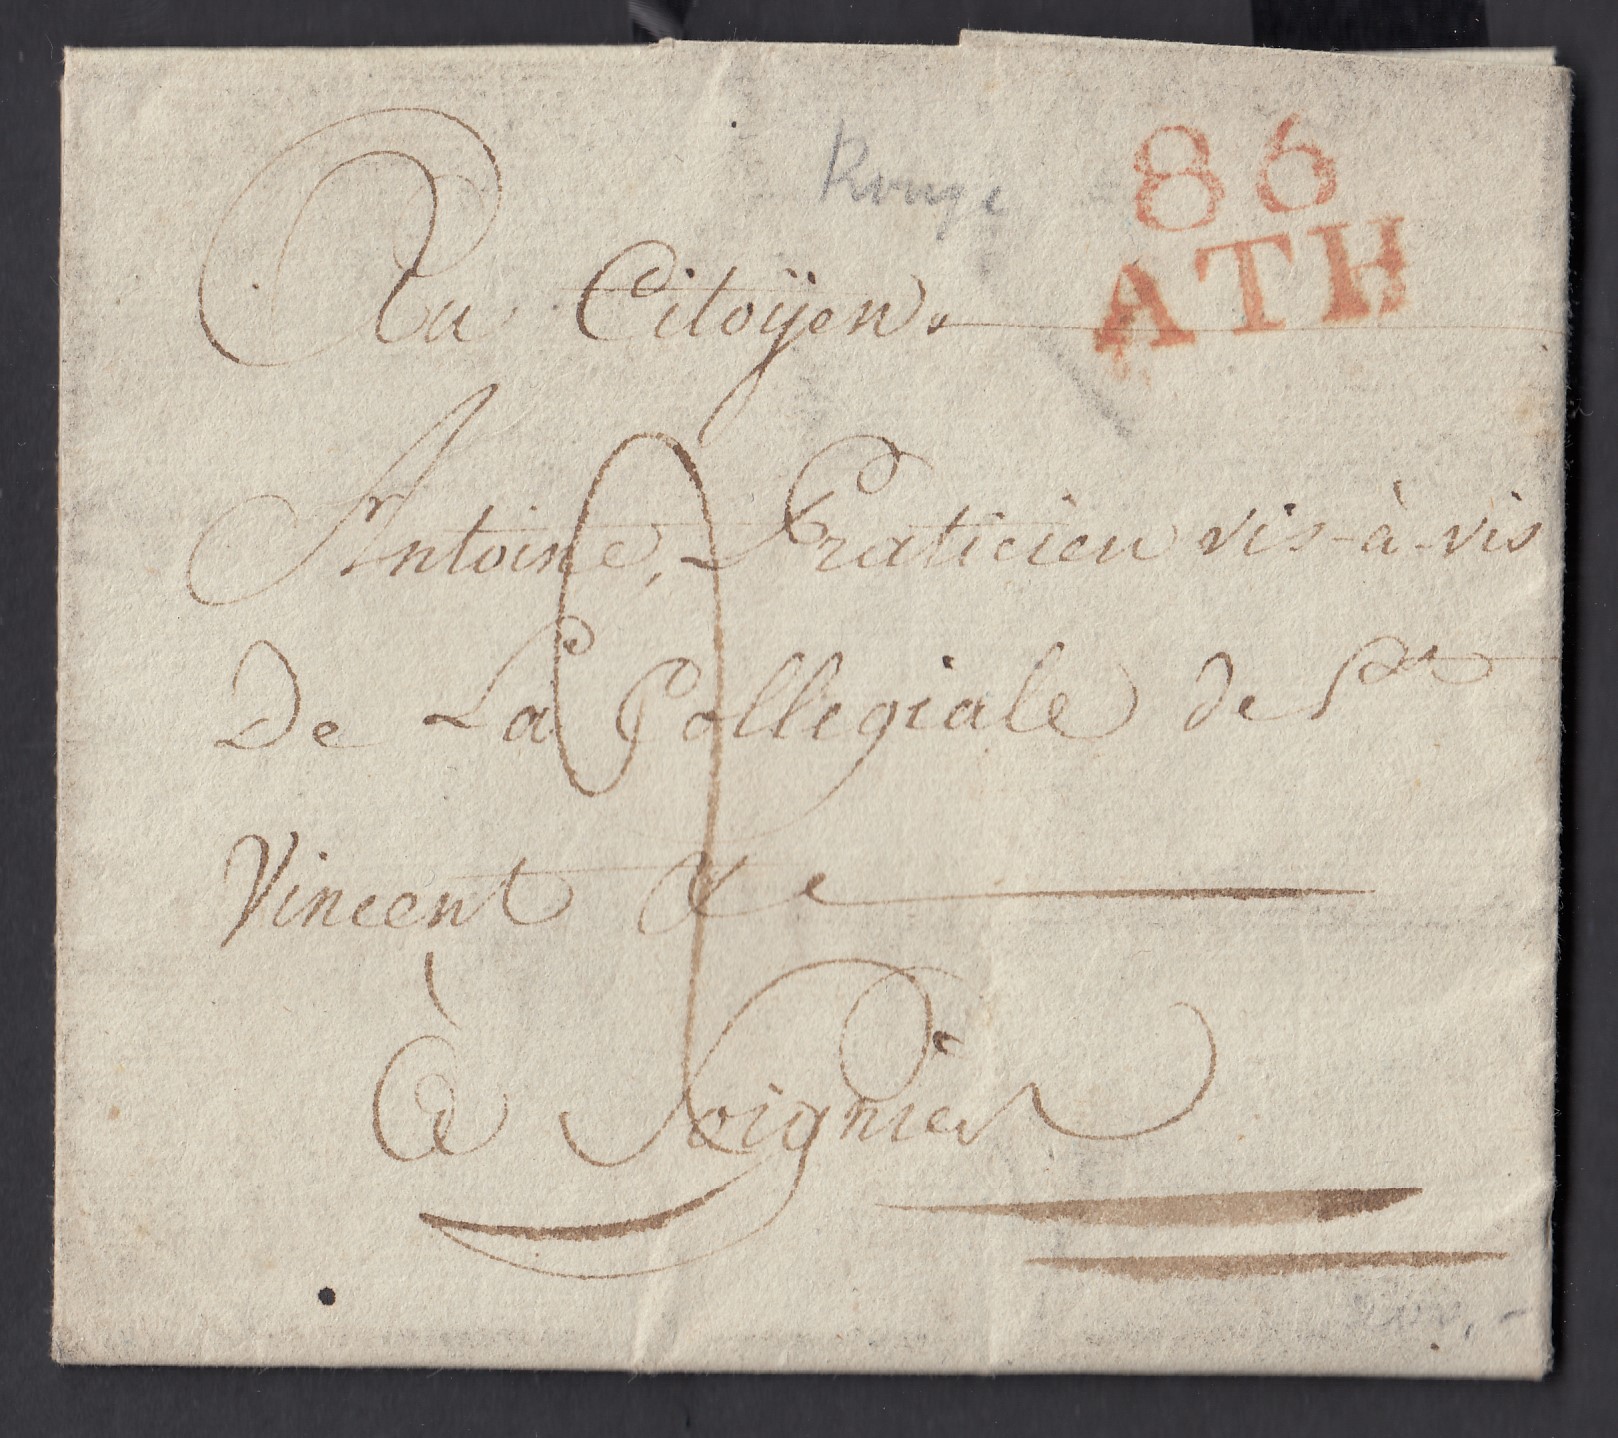 Rouge
86
ATH
Au Citoÿen
Antoine, Praticien vis-à-vis
De La Collegiale de St
Vincent &c
à Soignies
2